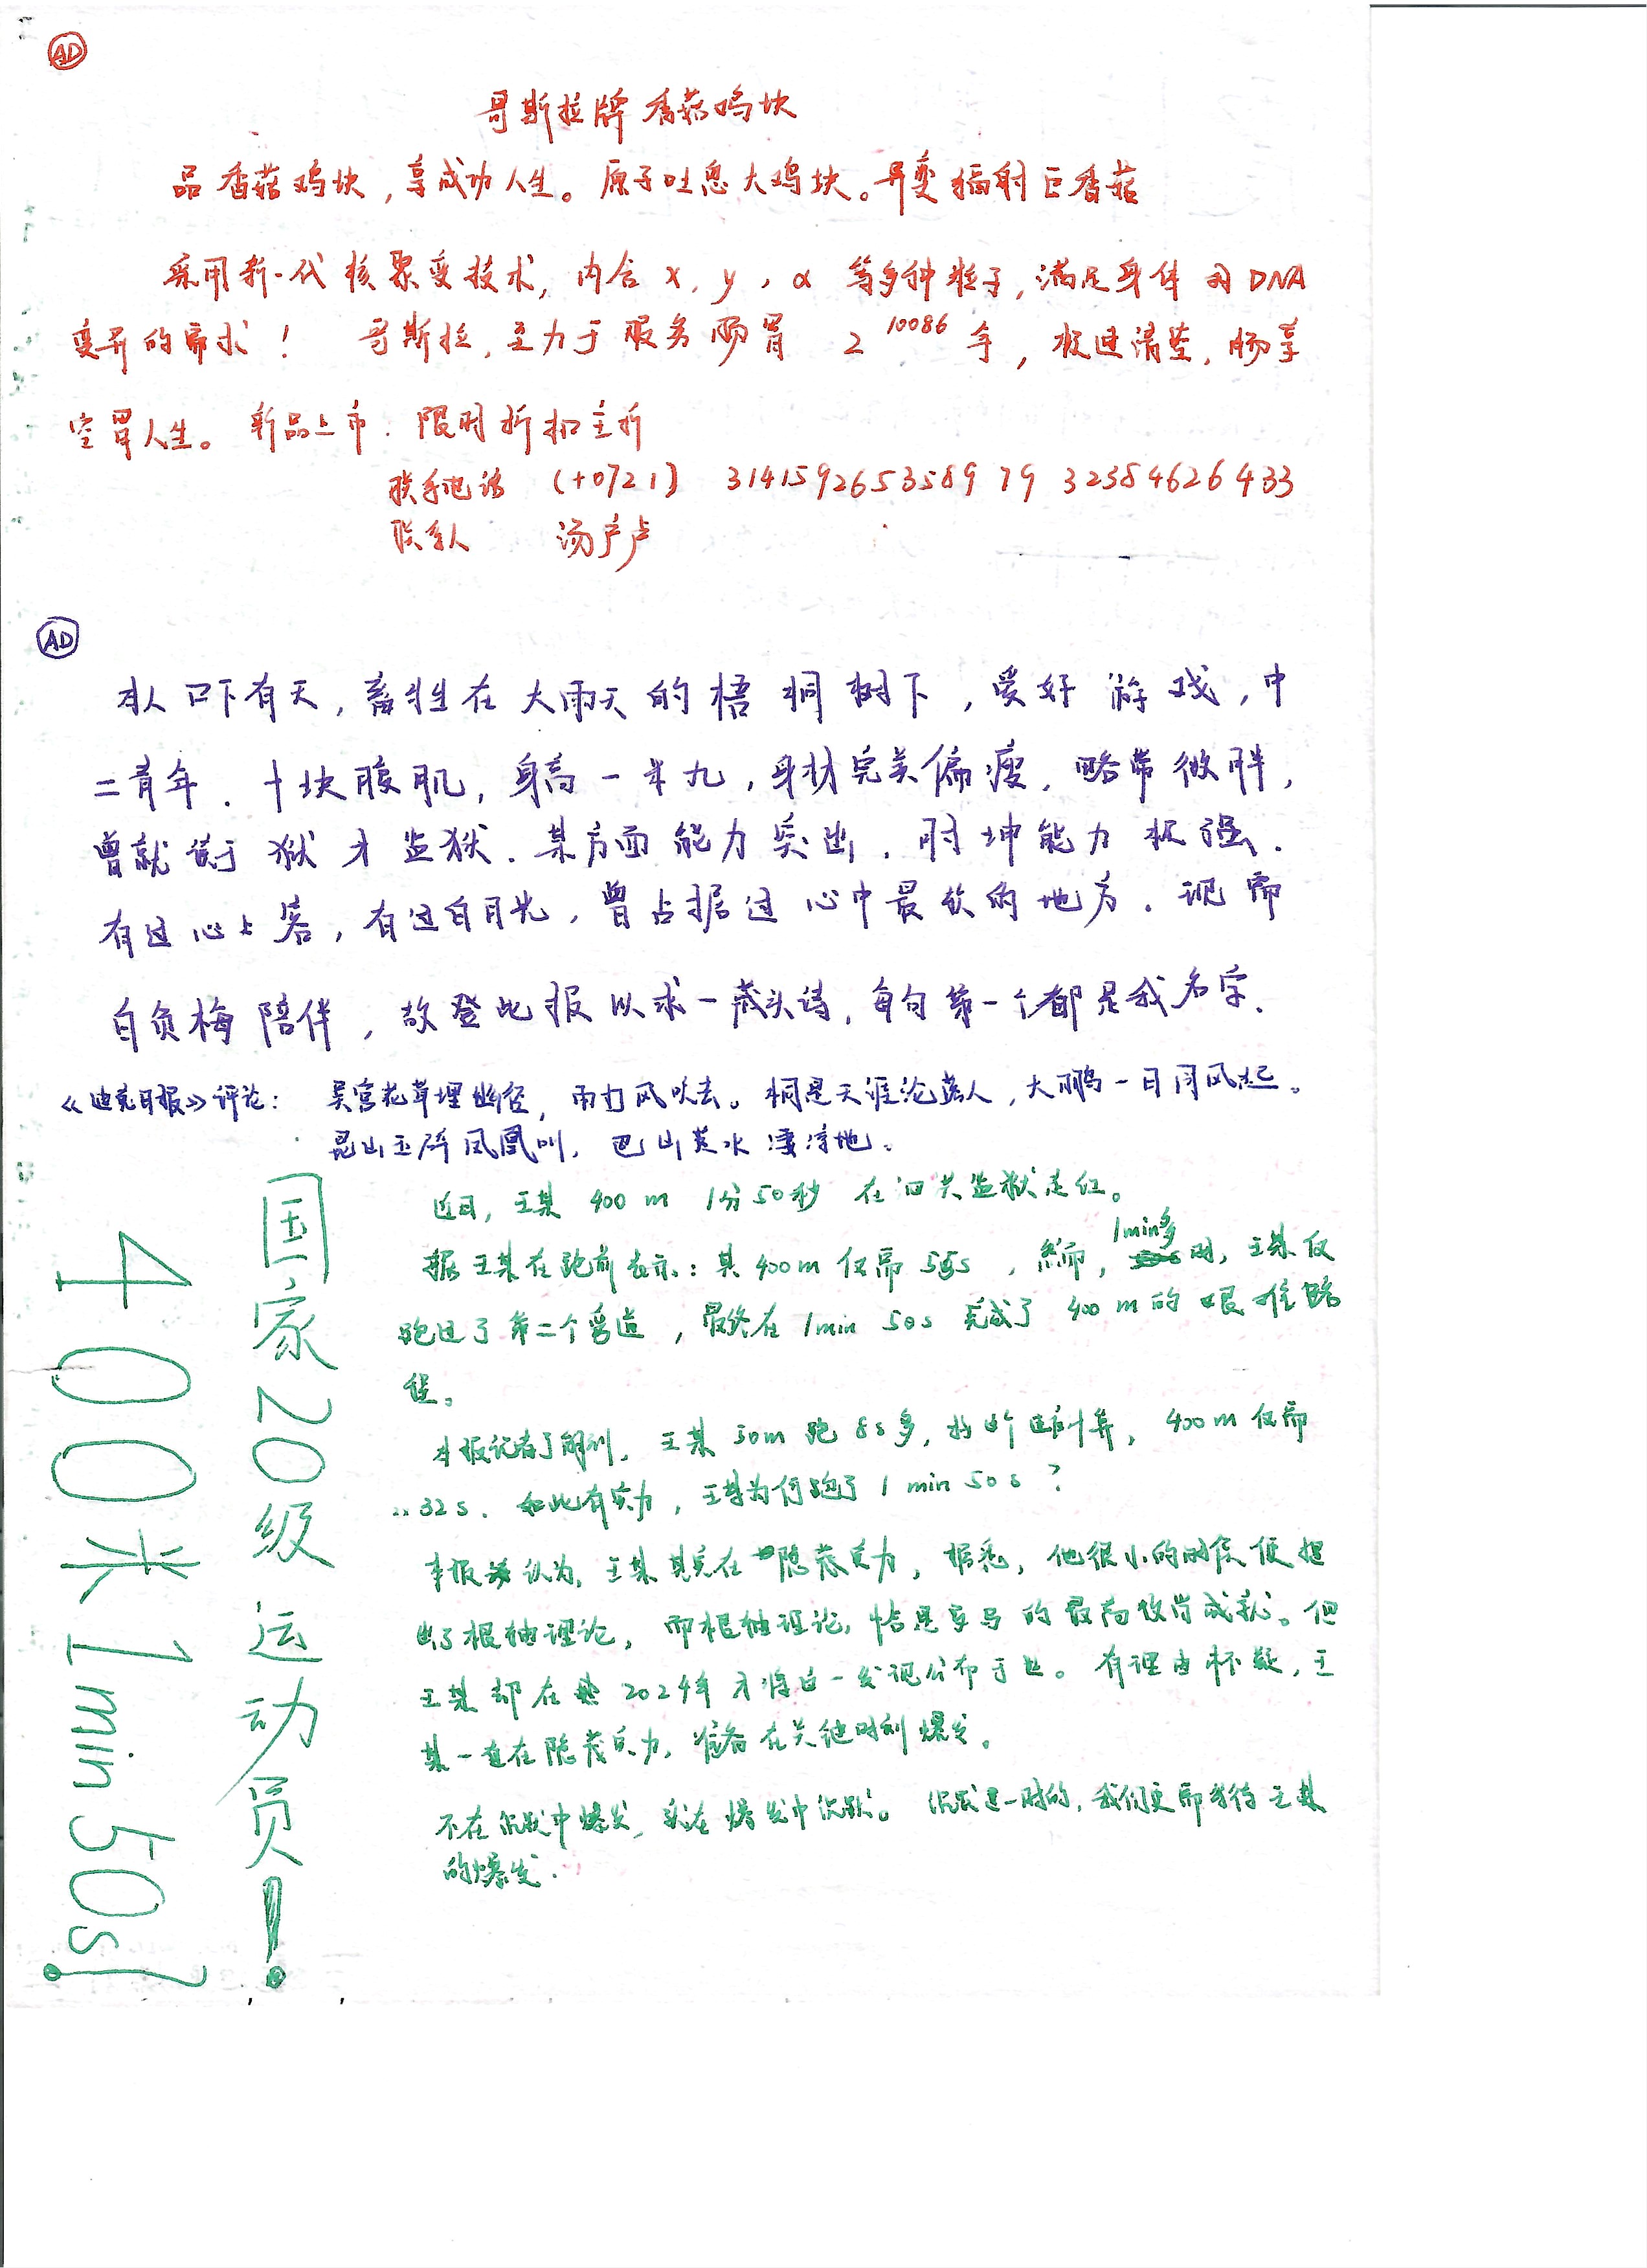 AD
哥斯拉牌香菇鸡块
品香菇鸡块，享成功人生。原子吐息大鸡块。异变辐射巨香菇
采用新一代核聚变技术，内含 x, y, α 等多种粒子，满足身体对DNA
变异的需求！ 哥斯拉，主力于服务肠胃 2^10086 年，极速清楚，肠享
空胃人生。新品上市．限时折扣主折
联系电话 (+0721) 314159265358979 32384626433
联系人 汤尸卢
AD
本人口下有天，畜牲在大雨天的梧桐树下，爱好游戏，中
二青年．十块腹肌，身高一米九，身材完美偏瘦．略带微胖，
曾就读于狱才监狱．某方面能力突出．时坤能力极强．
有过心上客，有过白月光，曾占据过心中最软的地方．现需
自负梅陪伴，故登此报以求一藏头诗，每句第一个都是我名字．
《迪克日报》评论： 吴宫花草埋幽径，雨打风吹去。桐是天涯沦落人，大鹏一日同风起。
昆山玉碎凤凰叫，巴山楚水凄凉地。
国家20级运动员！
400米1min50s！
近日，王某 400m 1分50秒 在四关监狱走红。
据王某在跑前表示：其400m仅需55s，然而，1min多时，王某仅
跑过了第二个弯道，最终在1min 50s 完成了400m的艰难路
径。
本报记者了解到，王某50m跑8s多，按这个速度计算，400m仅需
32s．如此有实力，王某为何跑了1 min 50s？
本报认为，王某其实在隐藏实力，据悉，他很小的时候便提
出了根轴理论，而根轴理论，恰是罗马的最高政治成就。但
王某却在2024年才将这一发现公布于世。有理由怀疑，王
某一直在隐藏实力，准备在关键时刻爆发。
不在沉默中爆发，就在爆发中沉默。沉默是一时的，我们更需期待王某
的爆发．